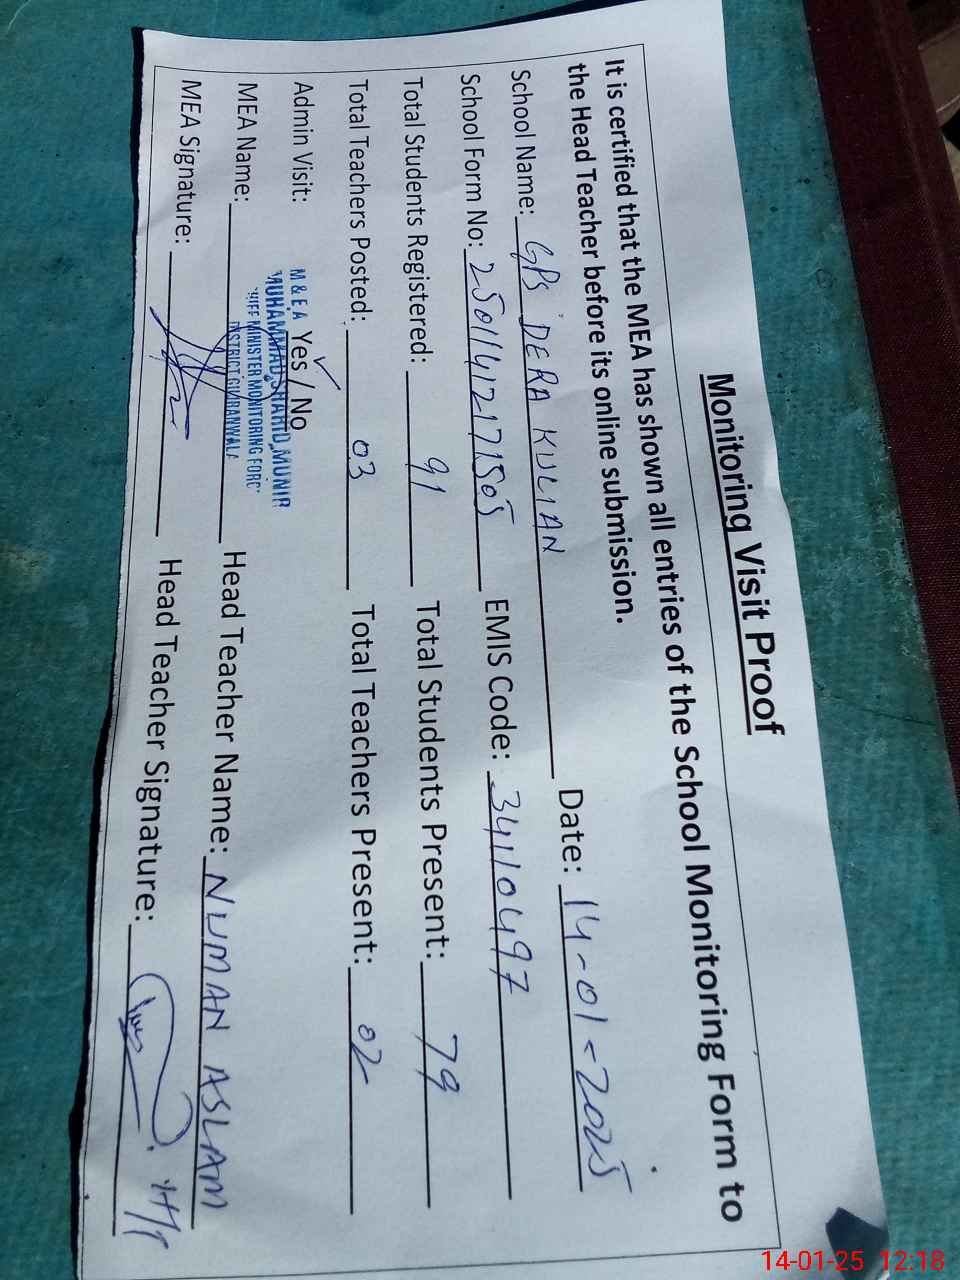 Monitoring Visit Proof
It is certified that the MEA has shown all entries of the School Monitoring Form to
the Head Teacher before its online submission.
School Name: GPS DERA KULIAN Date: 14-01-2025
School Form No: 25011412171505 EMIS Code: 34110497
Total Students Registered: 91 Total Students Present: 79
Total Teachers Posted: 03 Total Teachers Present: 02
Admin Visit: Yes / No
M & E A
MUHAMMAD SHAHID MUNIR
CHIEF MINISTER MONITORING FORC
DISTRICT GUJRANWALA
MEA Name: Head Teacher Name: NUMAN ASLAM
MEA Signature: Head Teacher Signature:
14-01-25 12:18